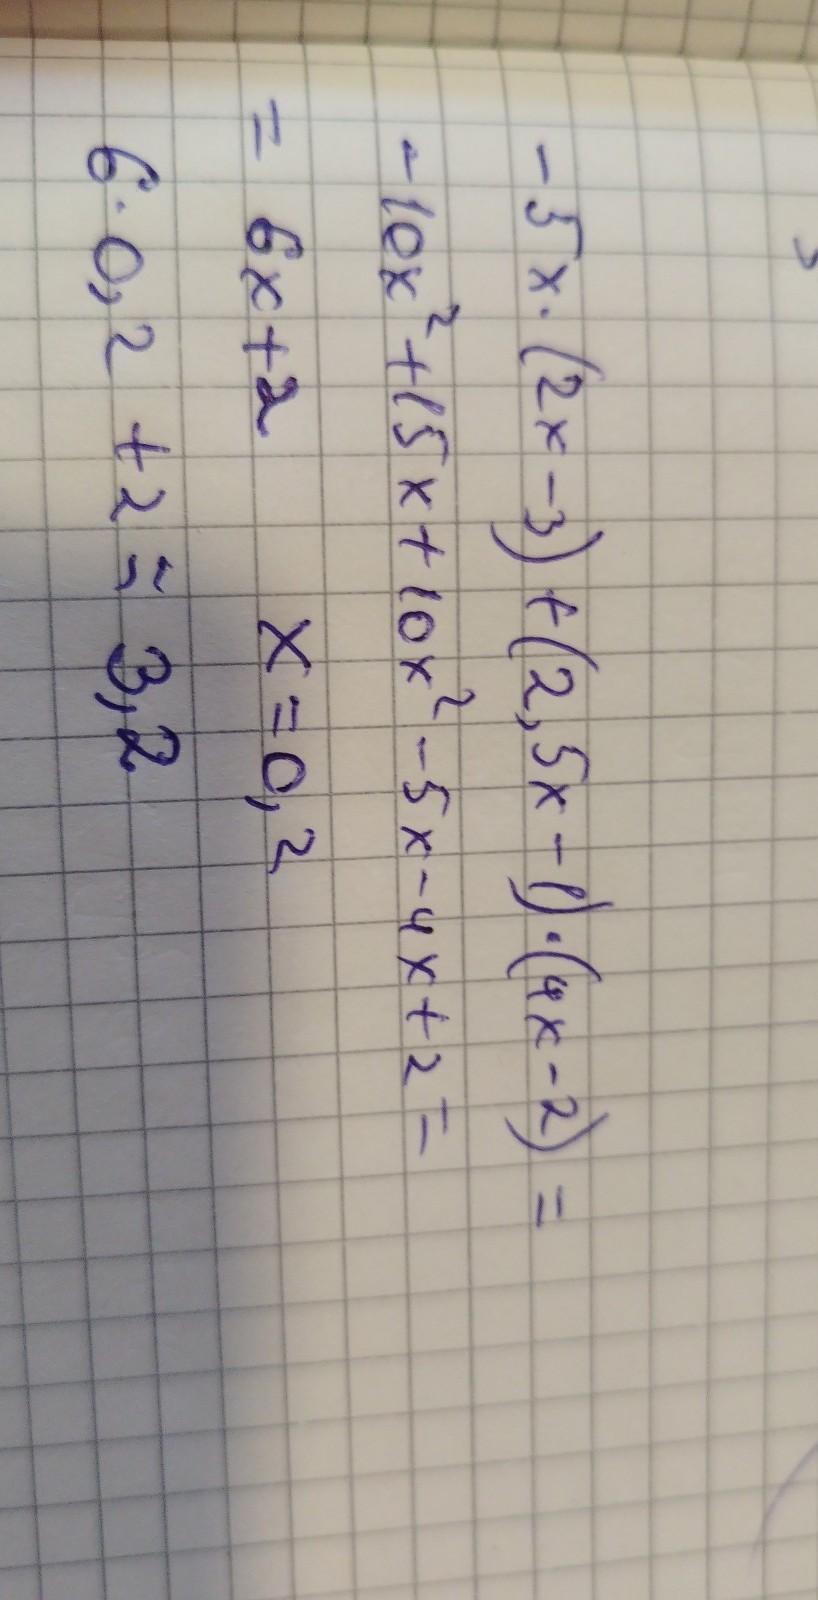 -5x·(2x-3)+(2,5x-1)·(4x-2)=
-10x²+15x+10x²-5x-4x+2=
= 6x+2 x=0,2
6·0,2+2=3,2